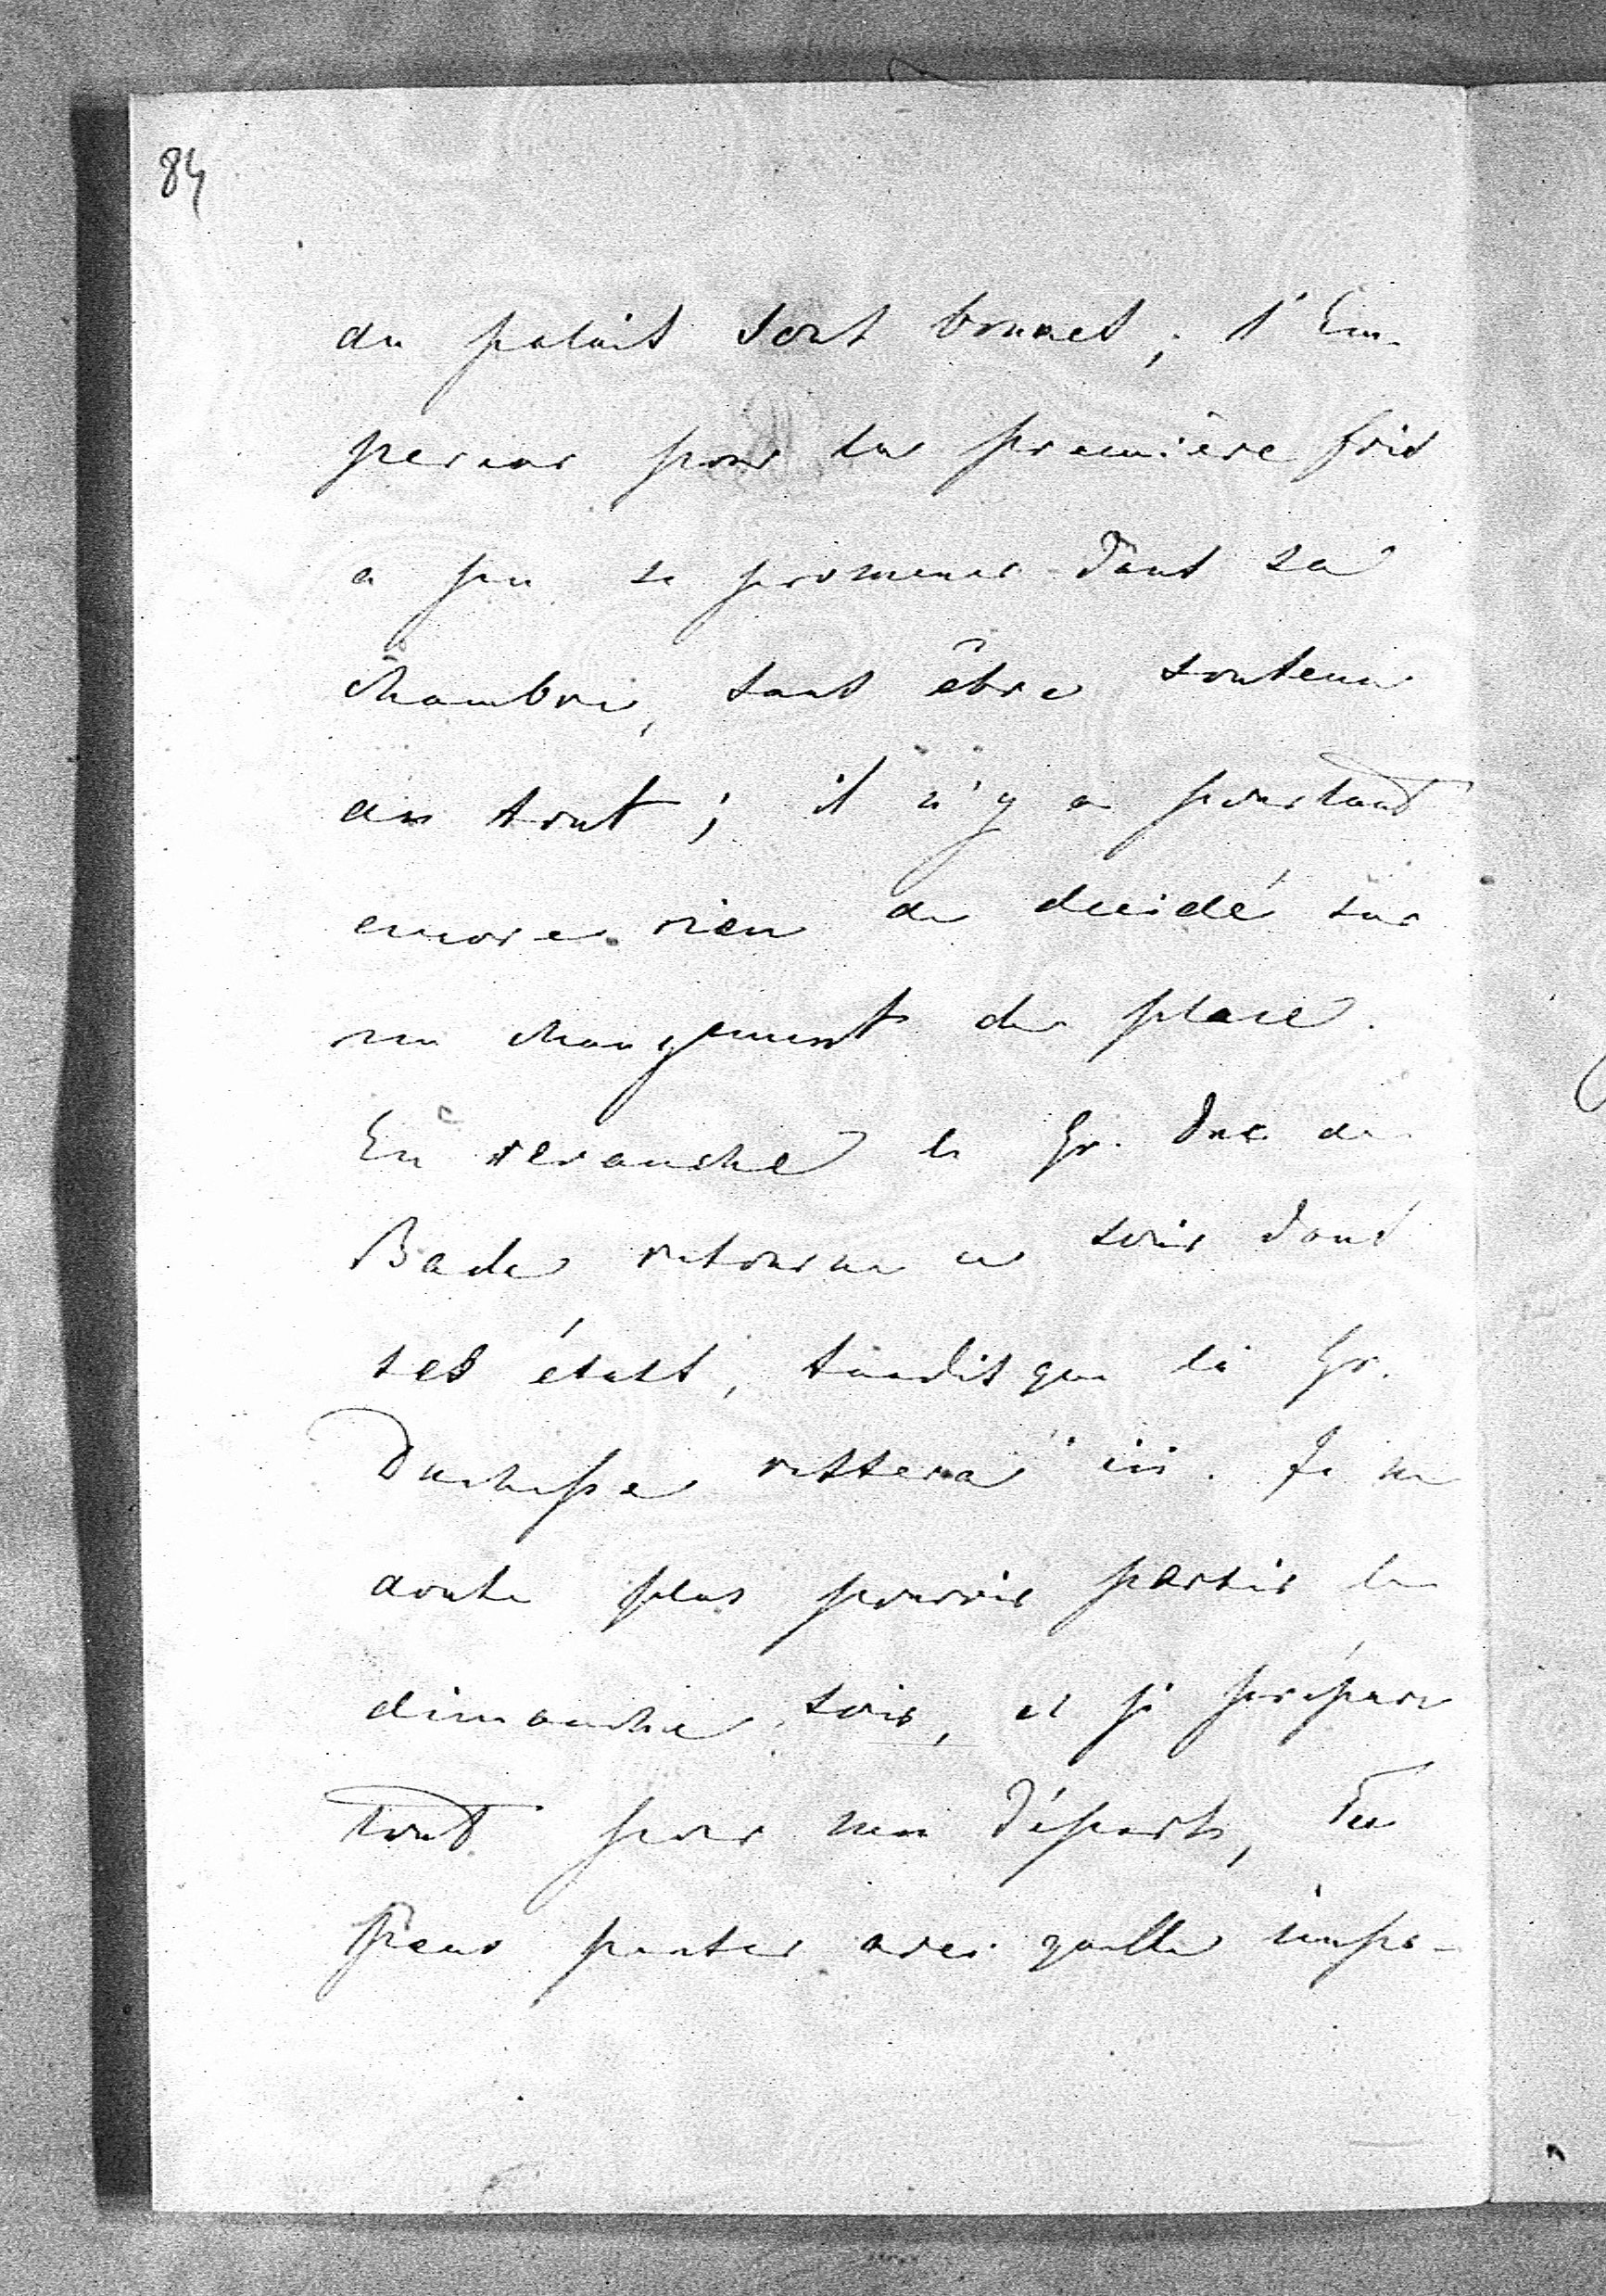 84
du palais sont bonnes; l'Em-
pereur pour la première fois
a pu se promener dans sa
chambre, sans être soutenu
du tout; il n'y a pourtant
encore rien de décidé sur
un changement de place.
En revanche le Gr. Duc de
Bade retourne ce soir dans
ses états, tandisque la Gr.
Duchesse restera ici. Je ne
doute plus pouvoir partir le
dimanche soir, et je prépare
tout pour mon départ, Tu
peux penser avec quelle impa-